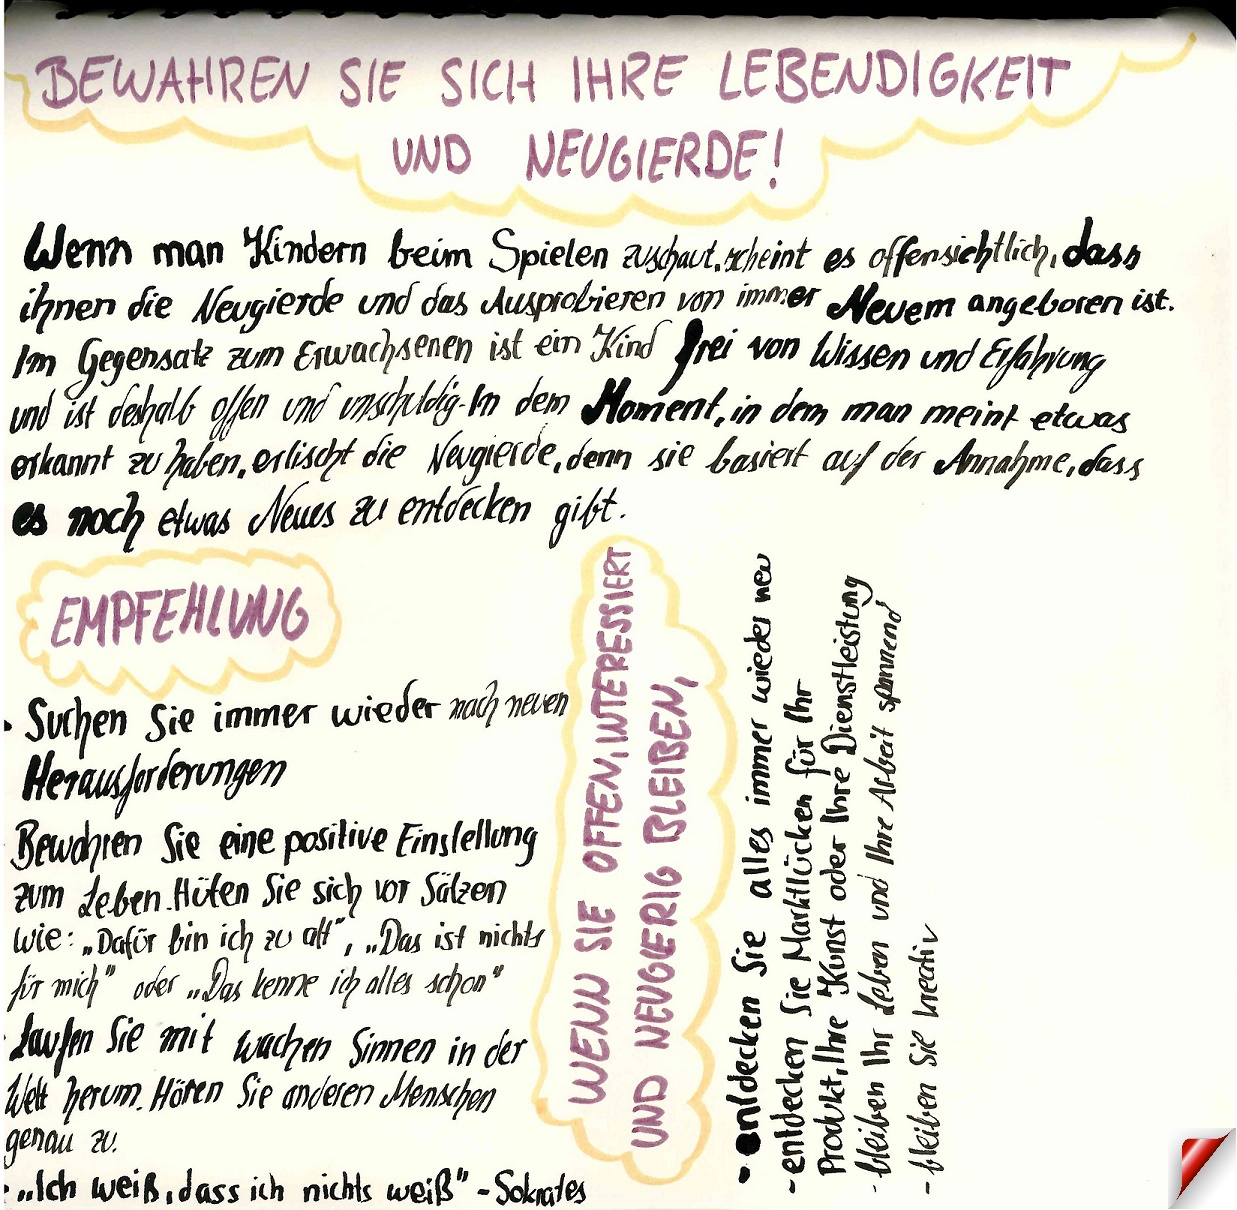 BEWAHREN SIE SICH IHRE LEBENDIGKEIT
UND NEUGIERDE!
Wenn man Kindern beim Spielen zuschaut, scheint es offensichtlich, dass
ihnen die Neugierde und das Ausprobieren von immer Neuem angeboren ist.
Im Gegensatz zum Erwachsenen ist ein Kind frei von Wissen und Erfahrung
und ist deshalb offen und unschuldig. In dem Moment, in dem man meint etwas
erkannt zu haben, erlischt die Neugierde, denn sie basiert auf der Annahme, dass
es noch etwas Neues zu entdecken gibt.
EMPFEHLUNG
- Suchen Sie immer wieder nach neuen
Herausforderungen
Bewahren Sie eine positive Einstellung
zum Leben. Hüten Sie sich vor Sätzen
wie: „Dafür bin ich zu alt", „Das ist nichts
für mich" oder „Das kenne ich alles schon"
- Laufen Sie mit wachen Sinnen in der
Welt herum. Hören Sie anderen Menschen
genau zu.
- „Ich weiß, dass ich nichts weiß" - Sokrates
WENN SIE OFFEN, INTERESSIERT
UND NEUGIERIG BLEIBEN,
- entdecken Sie alles immer wieder neu
- entdecken Sie Marktlücken für Ihr
Produkt, Ihre Kunst oder Ihre Dienstleistung
- bleiben Ihr Leben und Ihre Arbeit spannend
- bleiben Sie kreativ